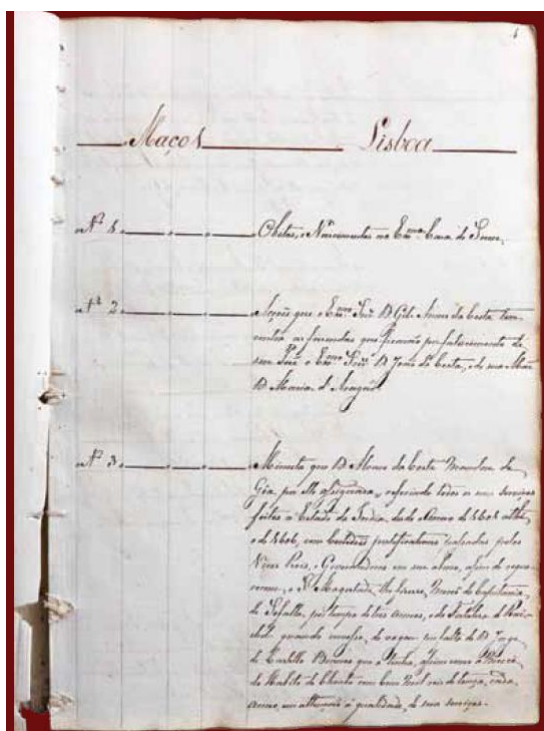 Maços Lisboa
Nº 1 Obitos, e Nascimentos na Exma. Caza de Soure,
Nº 2 Acções que o Exmo. Snr. D. Gil Annes da Costa tem
contra as fazendas que ficarão por falecimento de
seu Pai o Exmo. Snr. D. João da Costa, e de sua Mãe
D. Maria d'Aragão.
Nº 3 Minuta que D. Alvaro da Costa de
Goa, por elle assignara, referindo todos os seus serviços
feitos no Estado da India, desde o Anno de 1601 athé
o de 1606, com Certidões justificativas passadas pelos
Vice Reis, e Governadores em seu abono, afim de
a Sª. Magestade, lhe fizesse, Mercê da Capitania
de Soffalla, por tempo de tres annos, e da Fortaleza de
de D. Jorge
de Castello Branco que a tinha, assim como a Mercê
do Habito de Christo com Cem Mil reis de tença, cada
anno, em attenção á qualidade, de seus serviços.